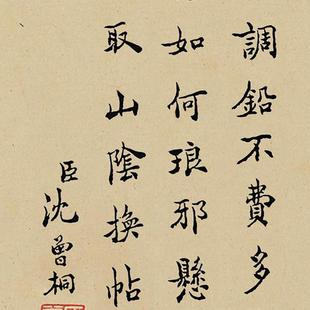 調鉛不費多
如何琅邪懸
取山陰換帖
臣沈曾桐